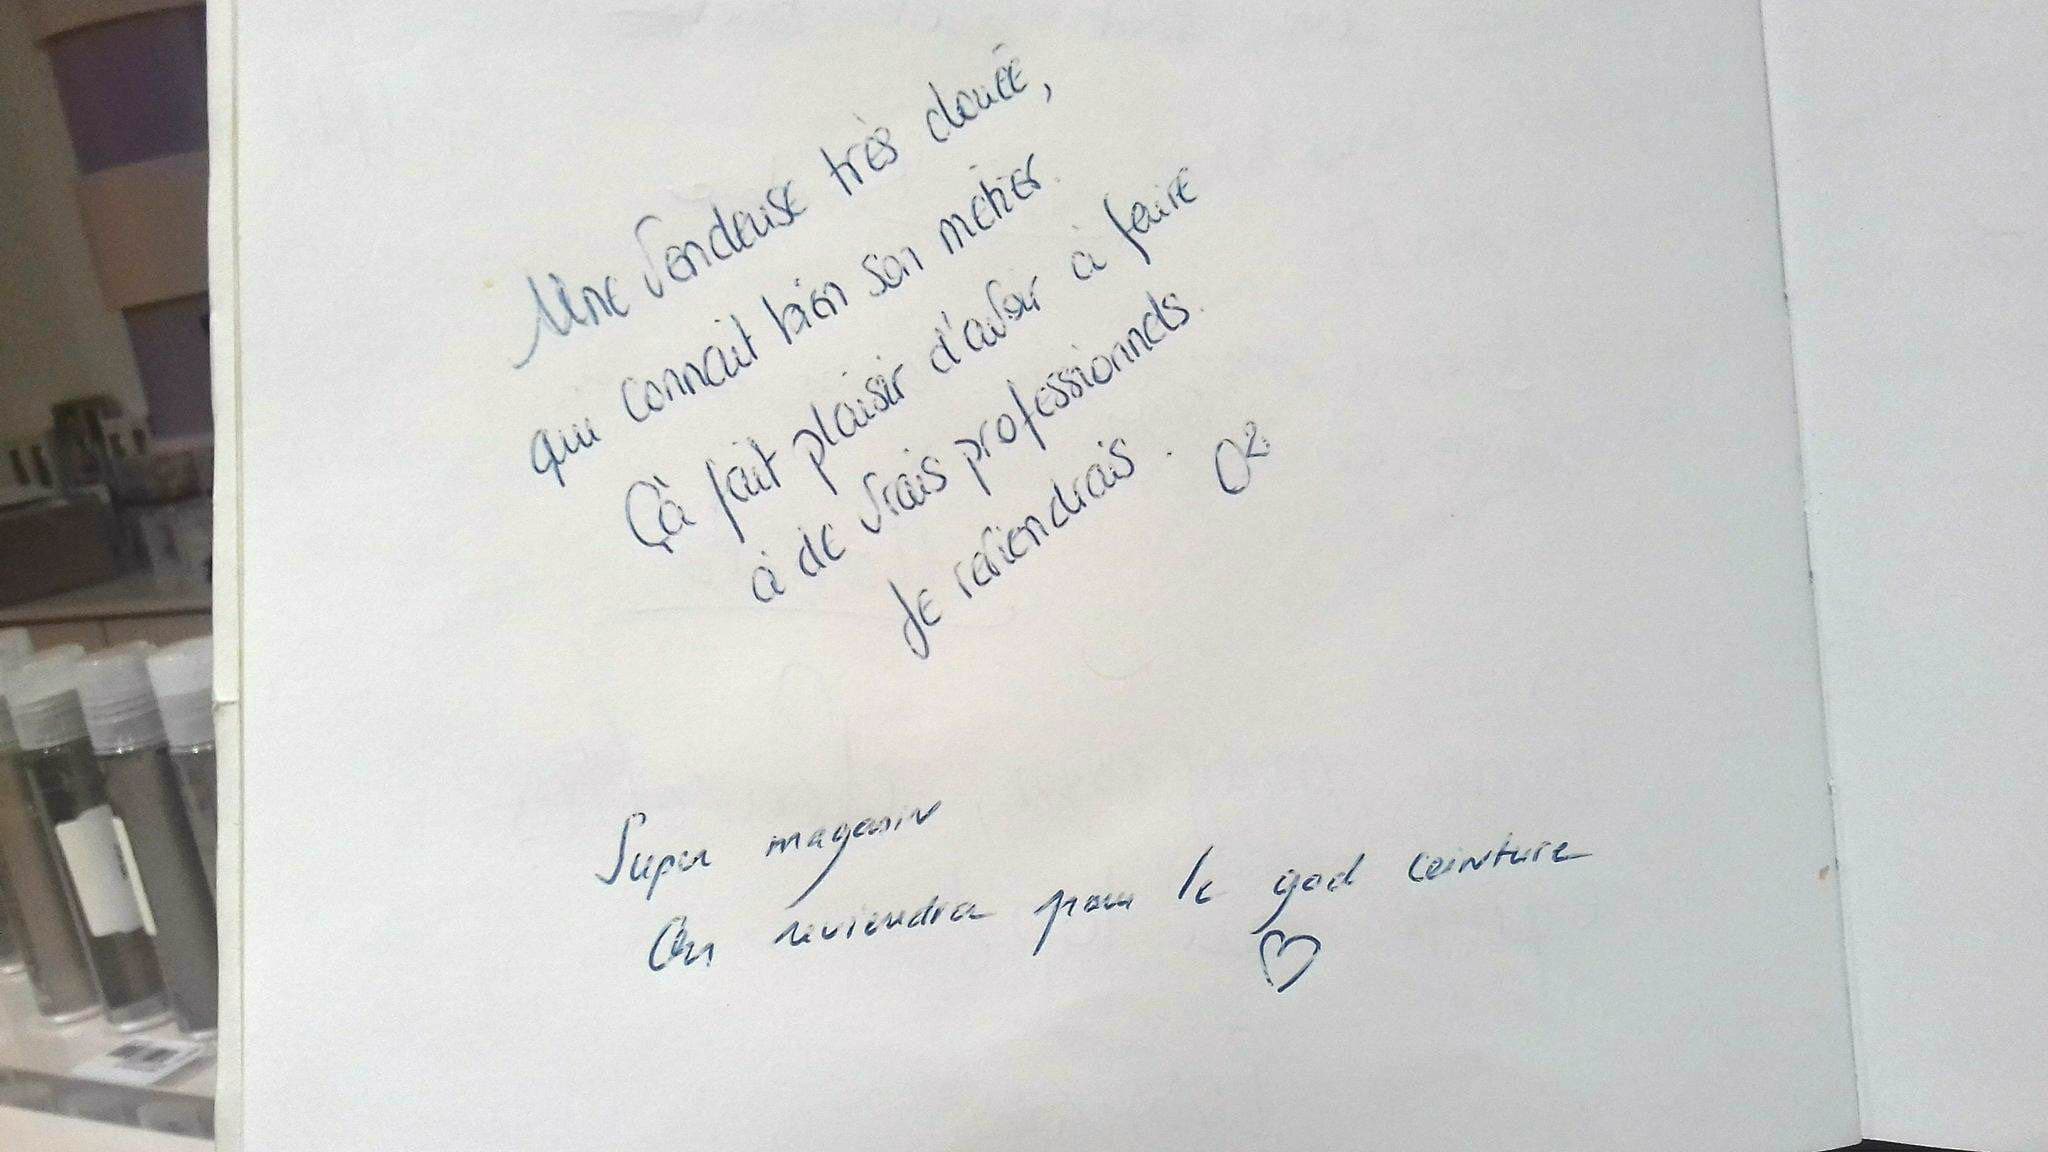 Une Vendeuse très douée,
qui connait bien son métier.
Çà fait plaisir d'avoir à faire
à de vrais professionnels.
Je reviendrais. O2
Super magasin
On reviendra pour le god ceinture
♡